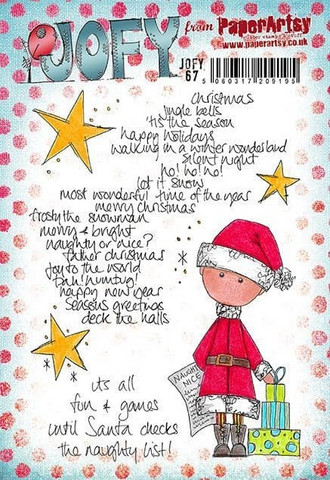 JOFY from PaperArtsy
www.paperartsy.co.uk
JOFY
67
5 060317 209195
Christmas
jingle bells
'tis the season
happy holidays
walking in a winter wonderland
silent night
ho! ho! ho!
let it snow
most wonderful time of the year
merry christmas
frosty the snowman
merry & bright
naughty or nice?
father christmas
joy to the world
bah! humbug!
happy new year
seasons greetings
deck the halls
NAUGHTY
NICE
it's all
fun & games
until Santa checks
the naughty list!